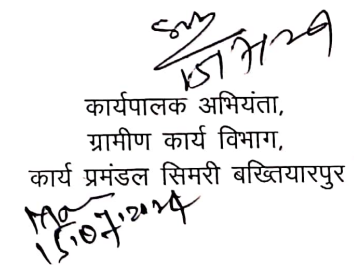 कार्यपालक अभियंता,
ग्रामीण कार्य विभाग,
कार्य प्रमंडल सिमरी बख्तियारपुर
15.07.2024